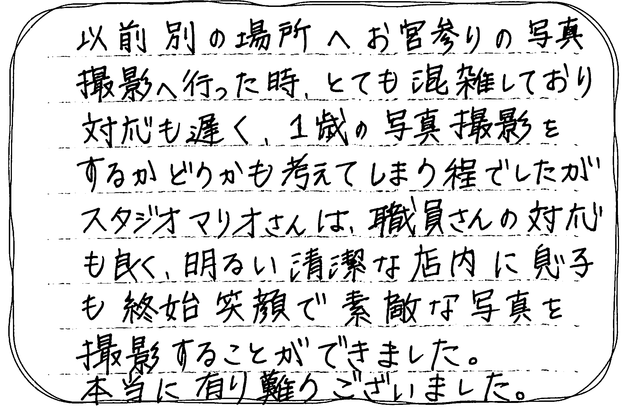 以前別の場所へお宮参りの写真
撮影へ行った時、とても混雑しており
対応も遅く、1歳の写真撮影を
するかどうかも考えてしまう程でしたが
スタジオマリオさんは、職員さんの対応
も良く、明るい清潔な店内に息子
も終始笑顔で素敵な写真を
撮影することができました。
本当に有り難うございました。